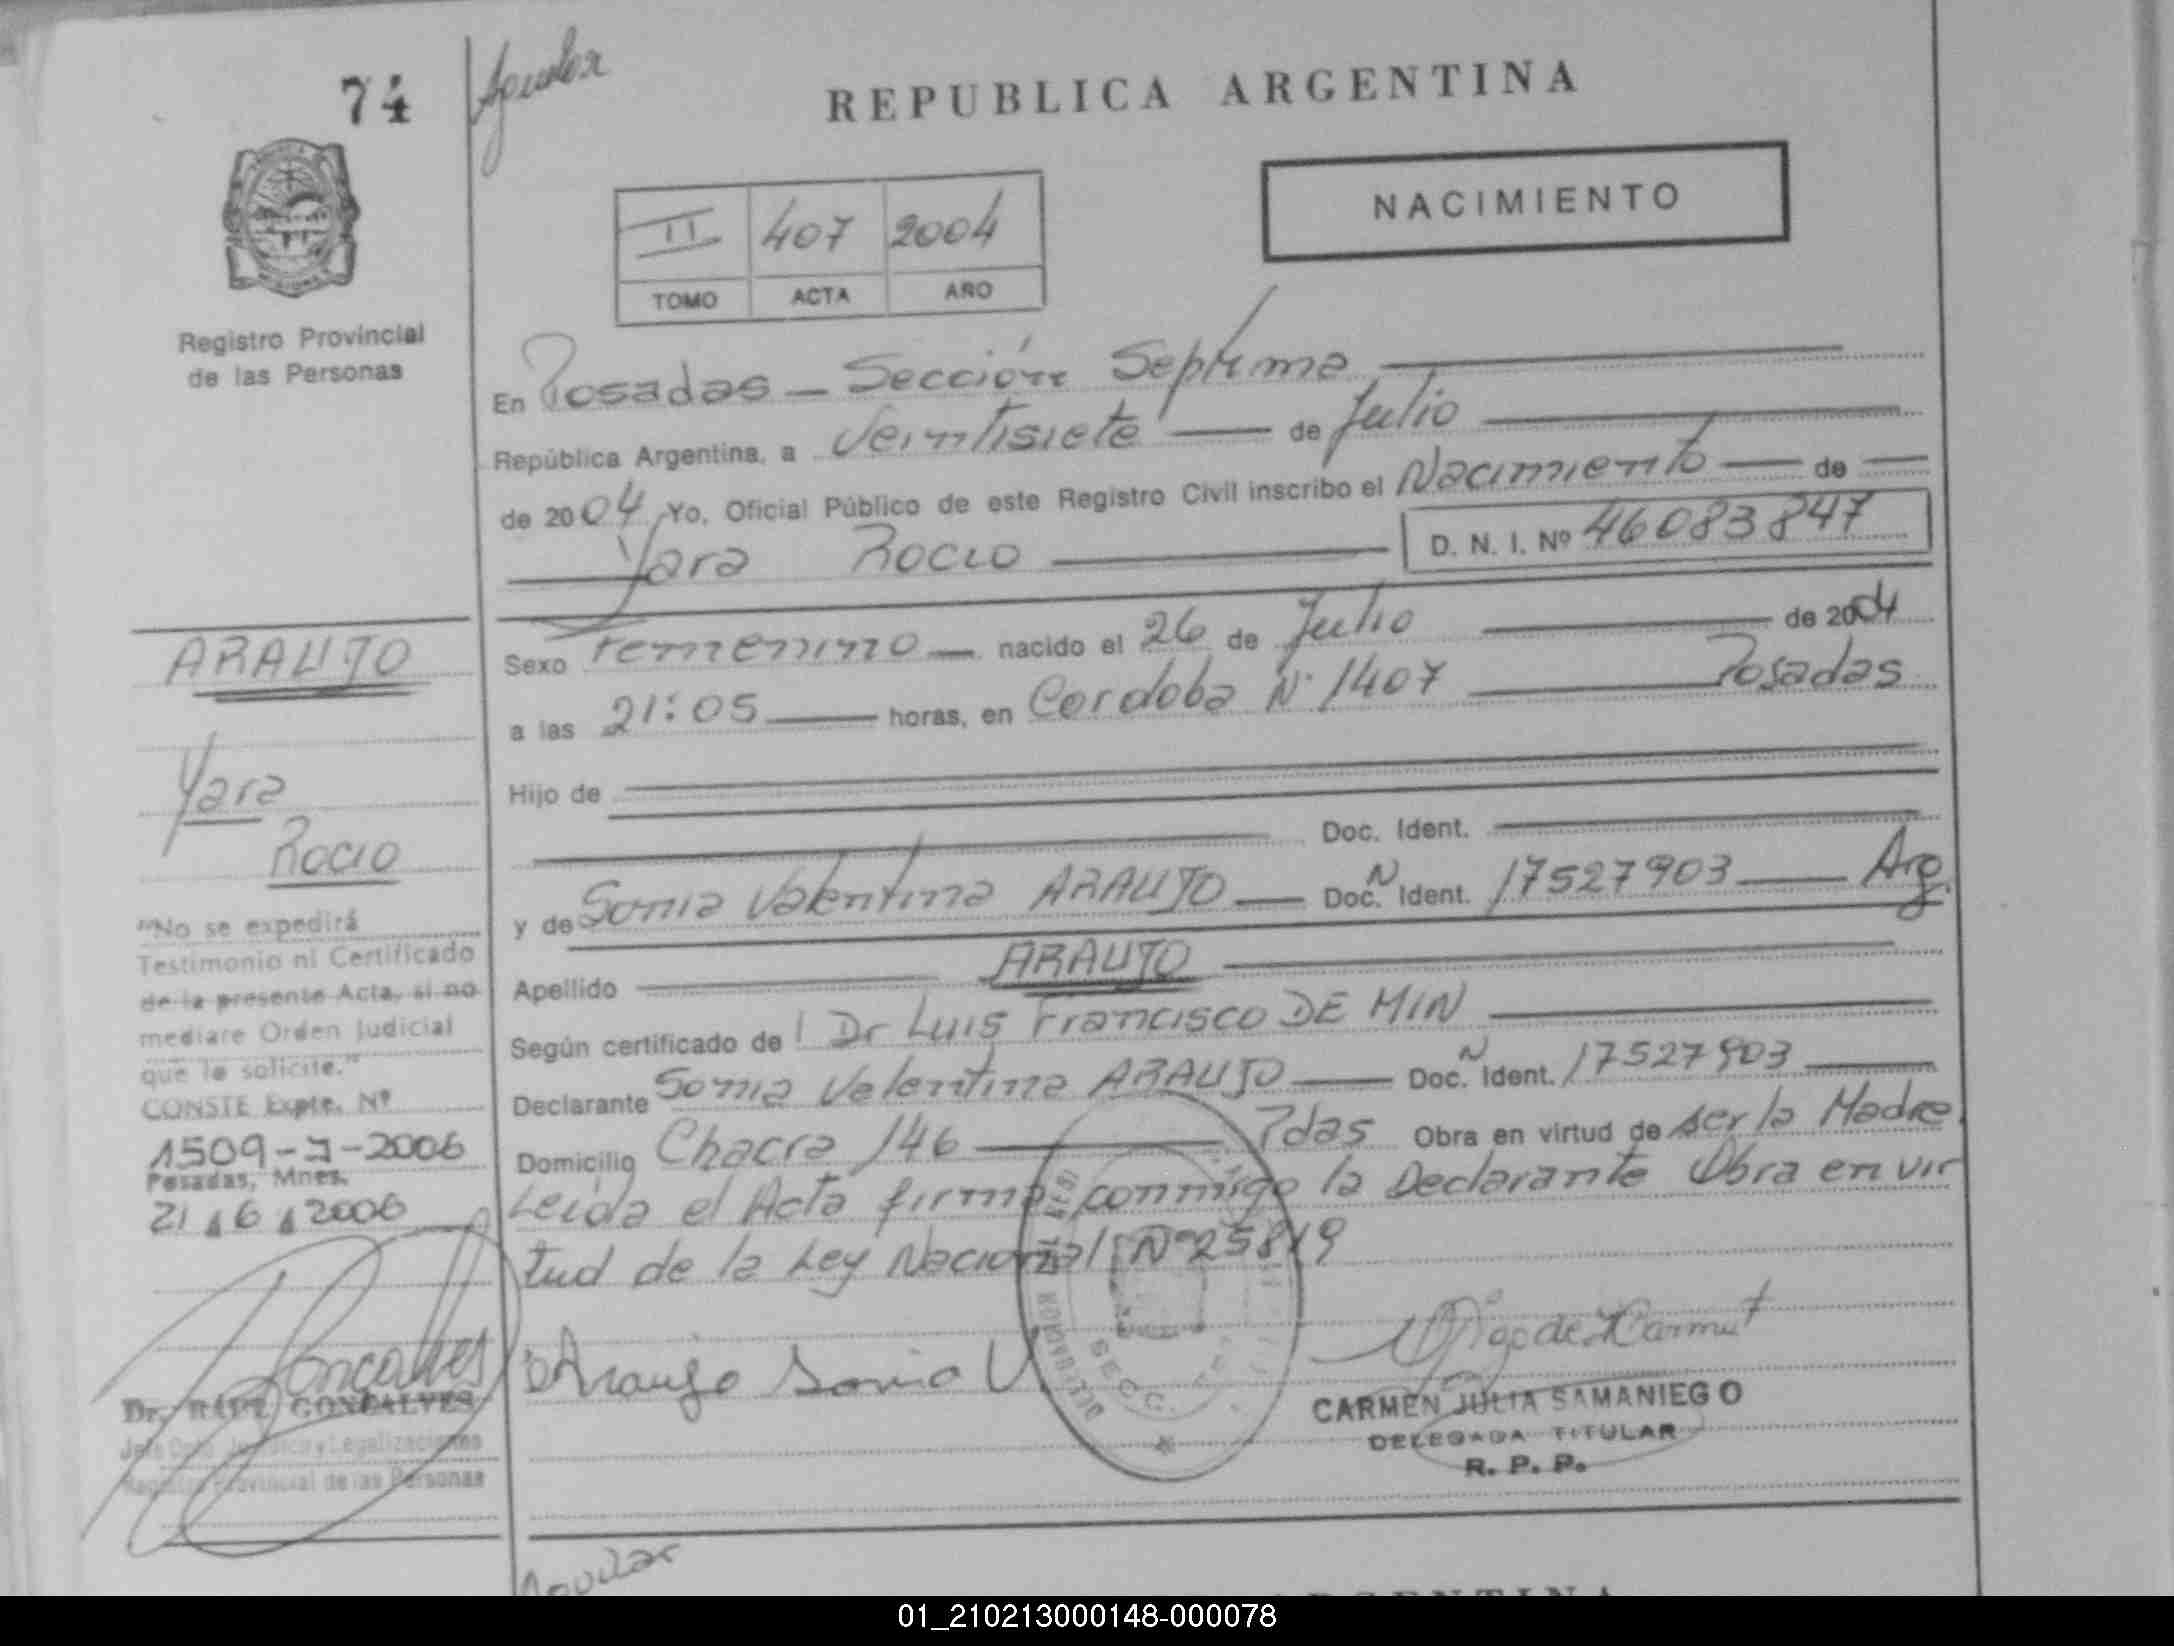 74
Aguilar
REPUBLICA ARGENTINA
NACIMIENTO
II 407 2004
TOMO ACTA AÑO
Registro Provincial
de las Personas
En Posadas — Sección Septima
República Argentina, a Veintisiete — de Julio
de 2004 Yo, Oficial Público de este Registro Civil inscribo el Nacimiento — de
Yara Rocio D. N. I. Nº 46083847
Sexo Femenino — nacido el 26 de Julio de 2004
a las 21:05 horas, en Cordoba Nº 1407 Posadas
Hijo de
Doc. Ident.
y de Sonia Valentina ARAUJO — Doc. N Ident. 17527903 — Arg.
Apellido ARAUJO
Según certificado de l Dr Luis Francisco DE MIN
Declarante Sonia Valentina ARAUJO — Doc. N Ident. 17527903
Domicilio Chacra 146 — Pdas Obra en virtud de ser la Madre.
Leida el Acta firma conmigo la Declarante Obra en vir
tud de la Ley Nacional Nº 25819
Araujo Sonia V.
CARMEN JULIA SAMANIEGO
DELEGADA TITULAR
R. P. P.
SECC.
ARAUJO
Yara
Rocio
"No se expedirá
Testimonio ni Certificado
de la presente Acta, si no
mediare Orden Judicial
que lo solicite."
CONSTE Expte. Nº
1509-J-2006
Posadas, Mnes.
21 6 2006
Goncalves
Dr. RAUL GONCALVES
Jefe Dpto. Jurídico y Legalizaciones
Registro Provincial de las Personas
Aguilar
ARGENTINA
01_210213000148-000078